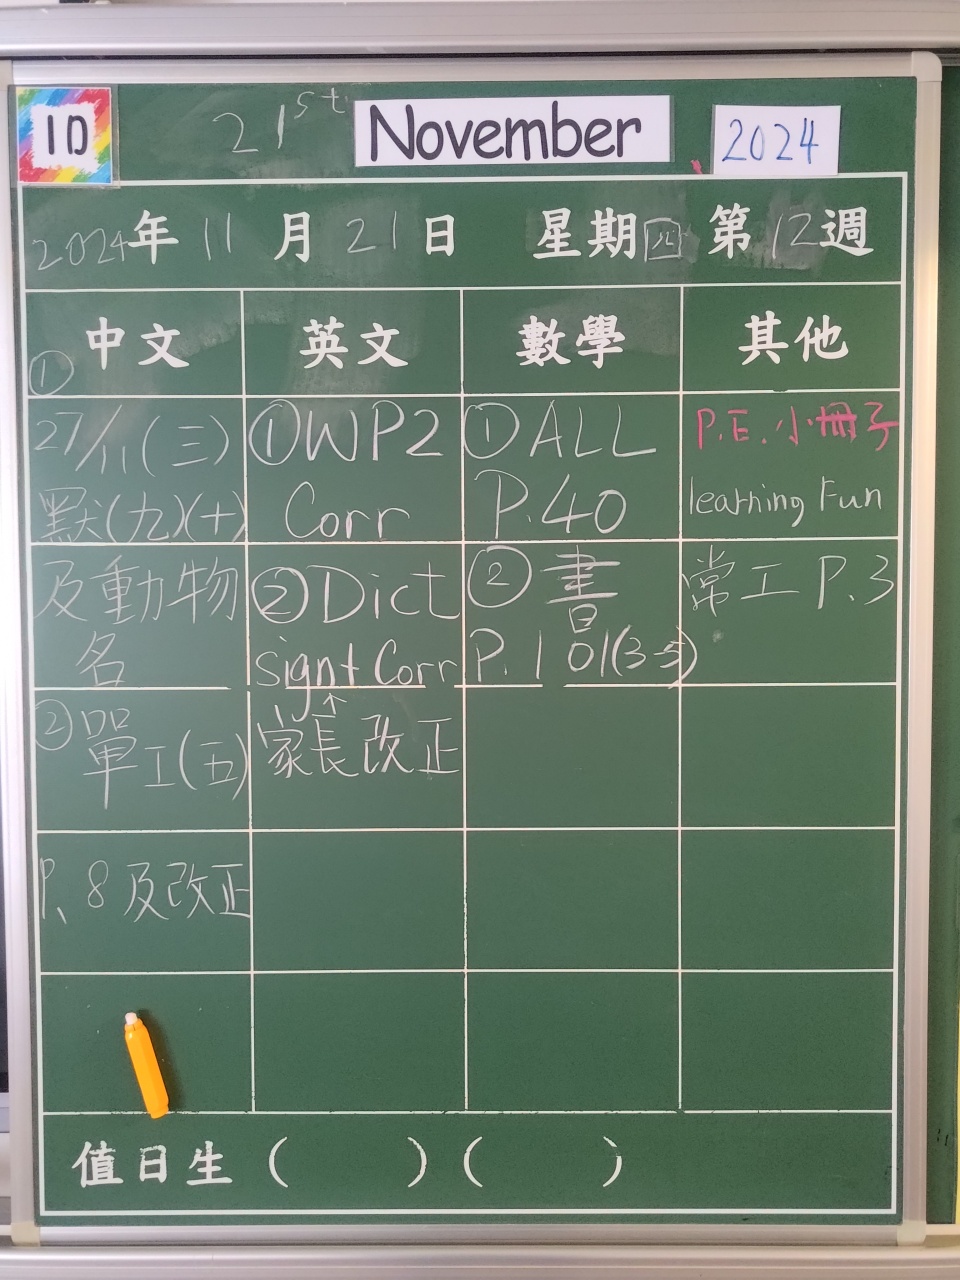 1D
21st November 2024
2024年11月21日 星期四 第12週
中文 英文 數學 其他
①
27/11(三)
默(九)(十)
及動物
名
②單工(五)
P.8及改正
①WP2
Corr
②Dict
sign+Corr
↑
家長改正
①ALL
P.40
②書
P.101(3-5)
P.E.小冊子
learning Fun
常工P.3
值日生( )( )